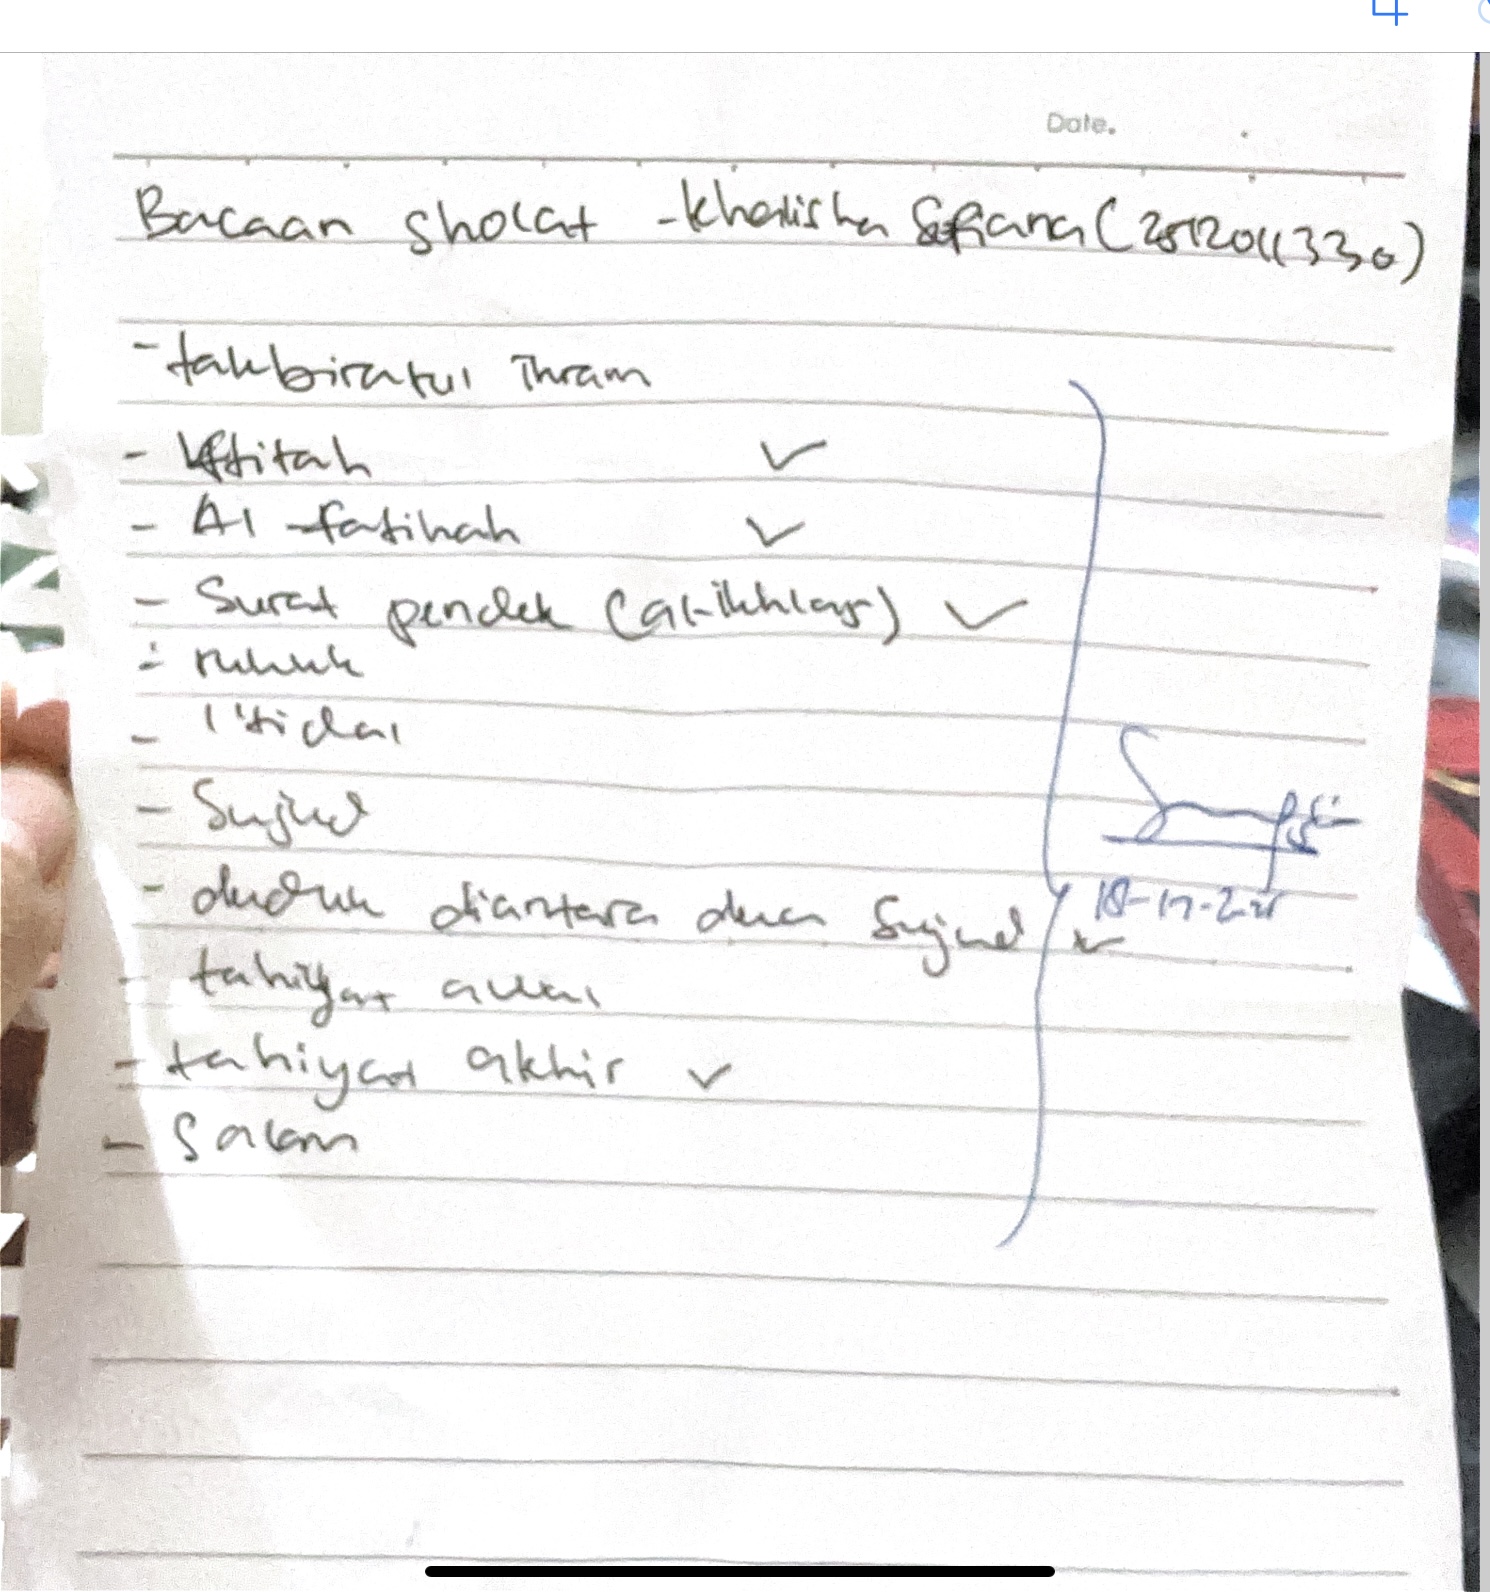 Date.
Bacaan sholat - khalisha Sofiana (2512011330)
- takbiratul Ihram
- Iftitah ✓
- Al-fatihah ✓
- Surat pendek (al-ikhlas) ✓
- rukuk
- I'tidal
- Sujud
- duduk diantara dua Sujud ✓
- tahiyat awal
- tahiyat akhir ✓
- Salam